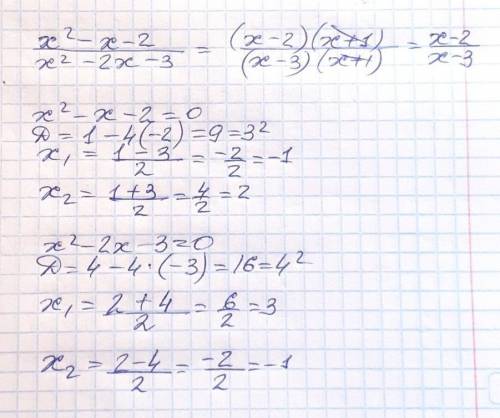 x² - x - 2 / x² - 2x - 3 = (x-2)(x+1) / (x-3)(x+1) = x-2 / x-3
x² - x - 2 = 0
Д = 1 - 4(-2) = 9 = 3²
x₁ = 1-3 / 2 = -2 / 2 = -1
x₂ = 1+3 / 2 = 4 / 2 = 2
x² - 2x - 3 = 0
Д = 4 - 4·(-3) = 16 = 4²
x₁ = 2+4 / 2 = 6 / 2 = 3
x₂ = 2-4 / 2 = -2 / 2 = -1